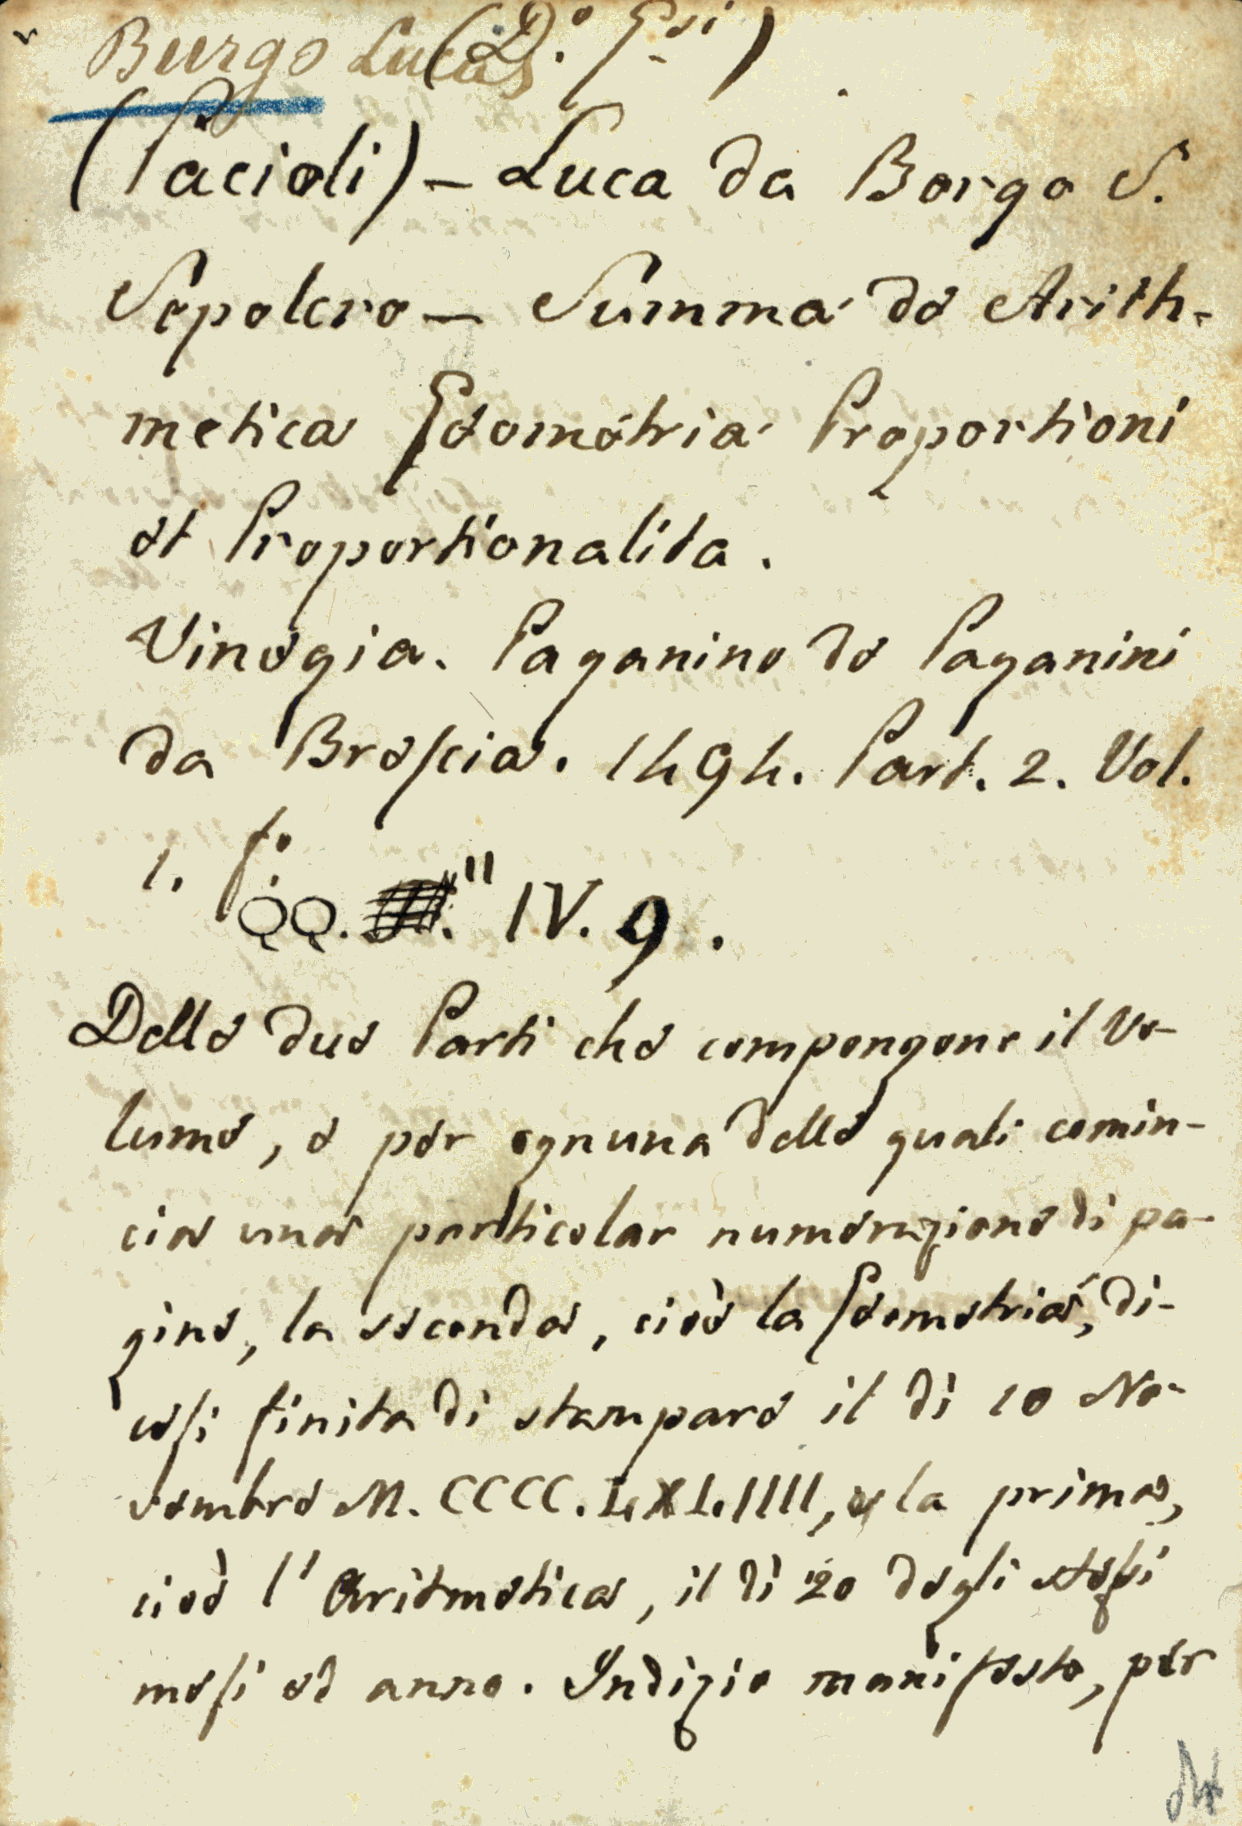 Burgo Lucas (D.º G.si)
(Pacioli) – Luca da Borgo S.
Sepolcro – Summa de Arith-
metica Geometria Proportioni
et Proportionalita.
Vinegia. Paganino de Paganini
da Brescia. 1494. Part. 2. Vol.
1. f.º
QQ. " IV. 9.
Delle due Parti che compongone il Vo-
lume, e per ognuna delle quali comin-
cia una particolar numerazione di pa-
gine, la seconda, cioè la Geometria, di-
cesi finita di stampare il dì 10 No-
vembre M. CCCC. LXL.IIII, e la prima,
cioè l'Aritmetica, il dì 20 degli stessi
mesi ed anno. Indizio manifesto, per